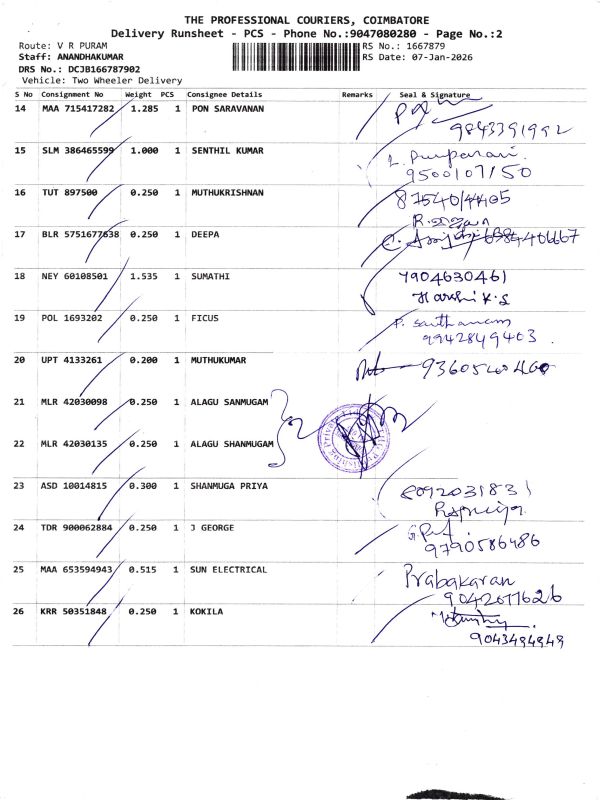 THE PROFESSIONAL COURIERS, COIMBATORE
Delivery Runsheet - PCS - Phone No.:9047080280 - Page No.:2
Route: V R PURAM RS No.: 1667879
Staff: ANANDHAKUMAR RS Date: 07-Jan-2026
DRS No.: DCJB166787902
Vehicle: Two Wheeler Delivery
S No Consignment No Weight PCS Consignee Details Remarks Seal & Signature
14 MAA 715417282 1.285 1 PON SARAVANAN
9843391992
15 SLM 386465599 1.000 1 SENTHIL KUMAR
9500107150
16 TUT 897500 0.250 1 MUTHUKRISHNAN
8754014405
17 BLR 5751677638 0.250 1 DEEPA
18 NEY 60108501 1.535 1 SUMATHI 7904630461
Harshi K.S
19 POL 1693202 0.250 1 FICUS P. Santhanam
9942849403
20 UPT 4133261 0.200 1 MUTHUKUMAR
21 MLR 42030098 0.250 1 ALAGU SANMUGAM
22 MLR 42030135 0.250 1 ALAGU SHANMUGAM
23 ASD 10014815 0.300 1 SHANMUGA PRIYA 8092031831
24 TDR 900062884 0.250 1 J GEORGE
9790586486
25 MAA 653594943 0.515 1 SUN ELECTRICAL Prabakaran
26 KRR 50351848 0.250 1 KOKILA
9043494949